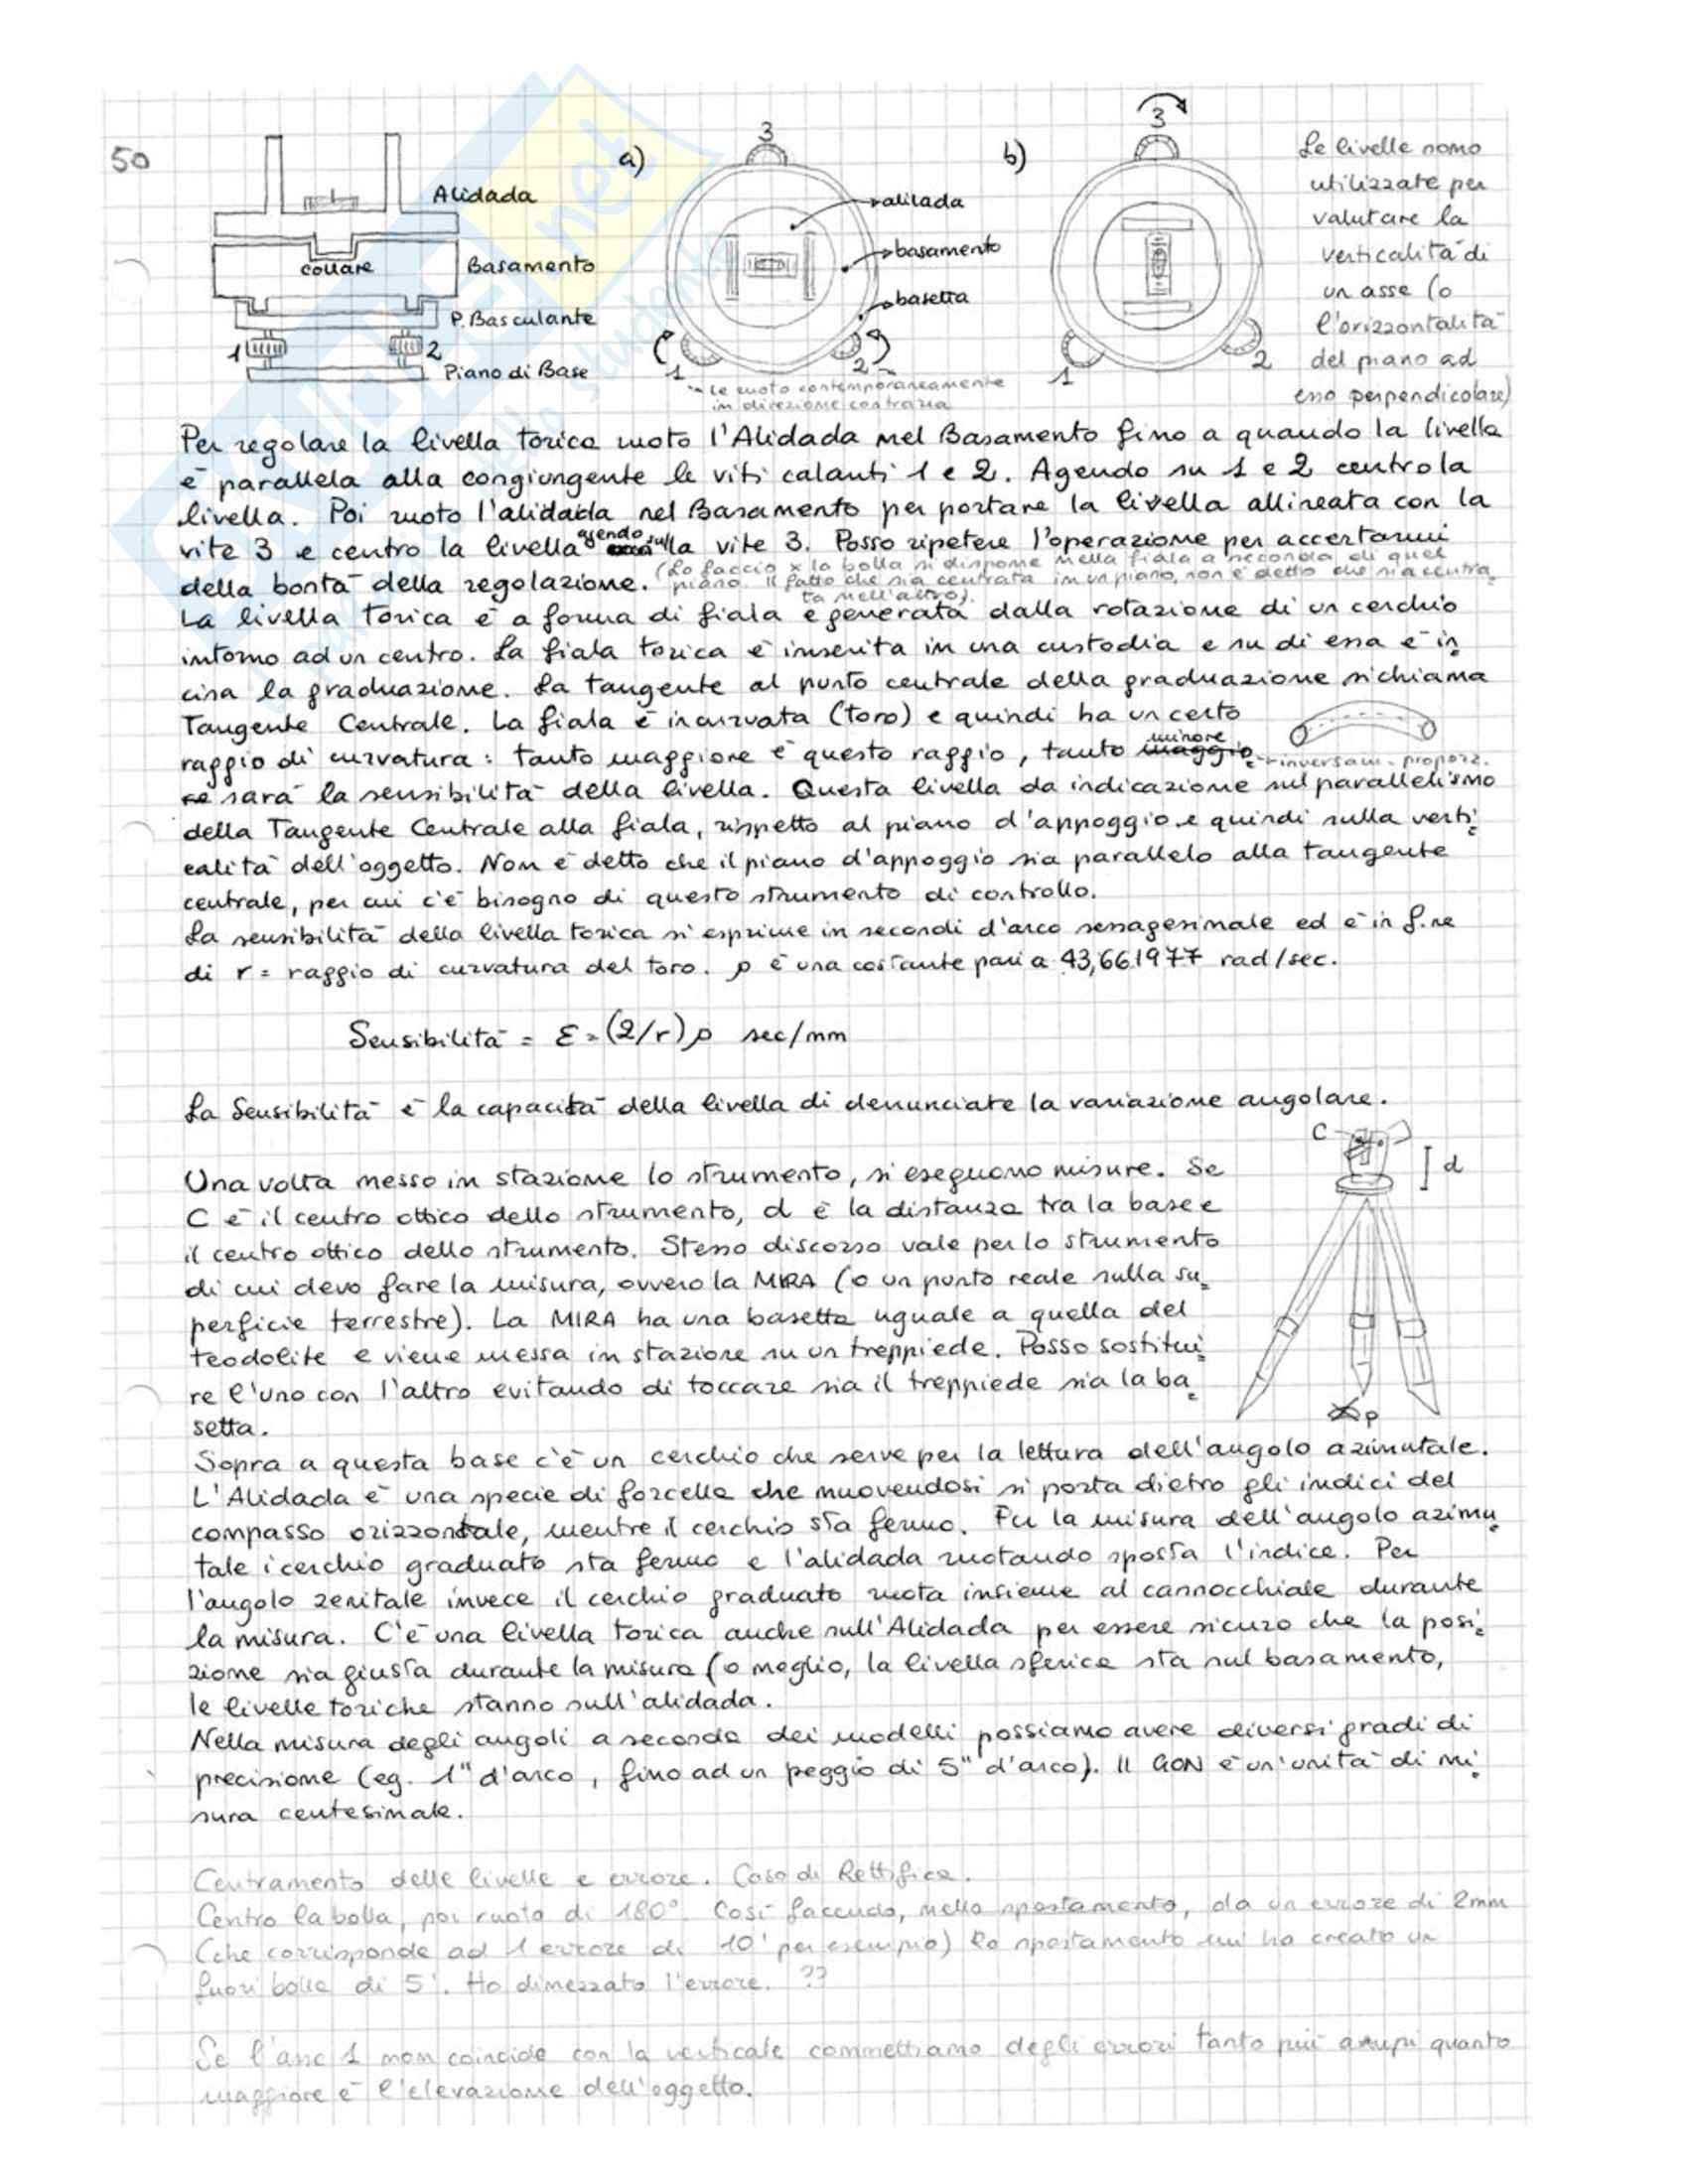 50
Alidada
collare
Basamento
P. Basculante
1
2
Piano di Base
a)
3
alilada
basamento
basetta
1
2
Le ruoto contemporaneamente
in direzione contraria
b)
3
1
2
Le livelle sono
utilizzate per
valutare la
verticalità di
un asse (o
l'orizzontalità
del piano ad
esso perpendicolare)
Per regolare la livella torica ruoto l'Alidada nel Basamento fino a quando la livella
è parallela alla congiungente le viti calanti 1 e 2. Agendo su 1 e 2 centro la
livella. Poi ruoto l'alidada nel Basamento per portare la livella allineata con la
vite 3 e centro la livella agendo sulla vite 3. Posso ripetere l'operazione per accertarmi
della bontà della regolazione. (Lo faccio x la bolla si dispone nella fiala a seconda di quel
piano. Il fatto che sia centrata in un piano, non è detto che sia centra
ta nell'altro).
La livella torica è a forma di fiala e generata dalla rotazione di un cerchio
intorno ad un centro. La fiala torica è inserita in una custodia e su di essa è in
cisa la graduazione. La tangente al punto centrale della graduazione si chiama
Tangente Centrale. La fiala è incurvata (toro) e quindi ha un certo
raggio di curvatura: tanto maggiore è questo raggio, tanto minore
inversam. proporz.
sarà la sensibilità della livella. Questa livella da indicazione sul parallelismo
della Tangente Centrale alla fiala, rispetto al piano d'appoggio e quindi sulla verti
calità dell'oggetto. Non è detto che il piano d'appoggio sia parallelo alla tangente
centrale, per cui c'è bisogno di questo strumento di controllo.
La sensibilità della livella torica si esprime in secondi d'arco sessagesimale ed è in f.ne
di r = raggio di curvatura del toro. ρ è una costante pari a 43,661977 rad/sec.
Sensibilità = ε = (2/r) ρ sec/mm
La Sensibilità è la capacità della livella di denunciate la variazione angolare.
C
d
p
Una volta messo in stazione lo strumento, si eseguono misure. Se
C è il centro ottico dello strumento, d è la distanza tra la base e
il centro ottico dello strumento. Stesso discorso vale per lo strumento
di cui devo fare la misura, ovvero la MIRA (o un punto reale sulla su
perficie terrestre). La MIRA ha una basetta uguale a quella del
teodolite e viene messa in stazione su un treppiede. Posso sostitui
re l'uno con l'altro evitando di toccare sia il treppiede sia la ba
setta.
Sopra a questa base c'è un cerchio che serve per la lettura dell'angolo azimutale.
L'Alidada è una specie di forcella che muovendosi si porta dietro gli indici del
compasso orizzontale, mentre il cerchio sta fermo. Per la misura dell'angolo azimu
tale i cerchio graduato sta fermo e l'alidada ruotando sposta l'indice. Per
l'angolo zenitale invece il cerchio graduato ruota insieme al cannocchiale durante
la misura. C'è una livella torica anche sull'Alidada per essere sicuro che la posi
zione sia giusta durante la misura (o meglio, la livella sferica sta sul basamento,
le livelle toriche stanno sull'alidada.
Nella misura degli angoli a seconda dei modelli possiamo avere diversi gradi di
precisione (eg. 1" d'arco, fino ad un peggio di 5" d'arco). Il GON è un'unità di mi
sura centesimale.
Centramento delle livelle e errore. Caso di Rettifica.
Centro la bolla, poi ruoto di 180°. Così facendo, nello spostamento, da un errore di 2mm
(che corrisponde ad 1 errore di 10' per esempio) lo spostamento mi ha creato un
fuori bolla di 5'. Ho dimezzato l'errore. ??
Se l'asse 1 non coincide con la verticale commettiamo degli errori tanto più ampi quanto
maggiore è l'elevazione dell'oggetto.